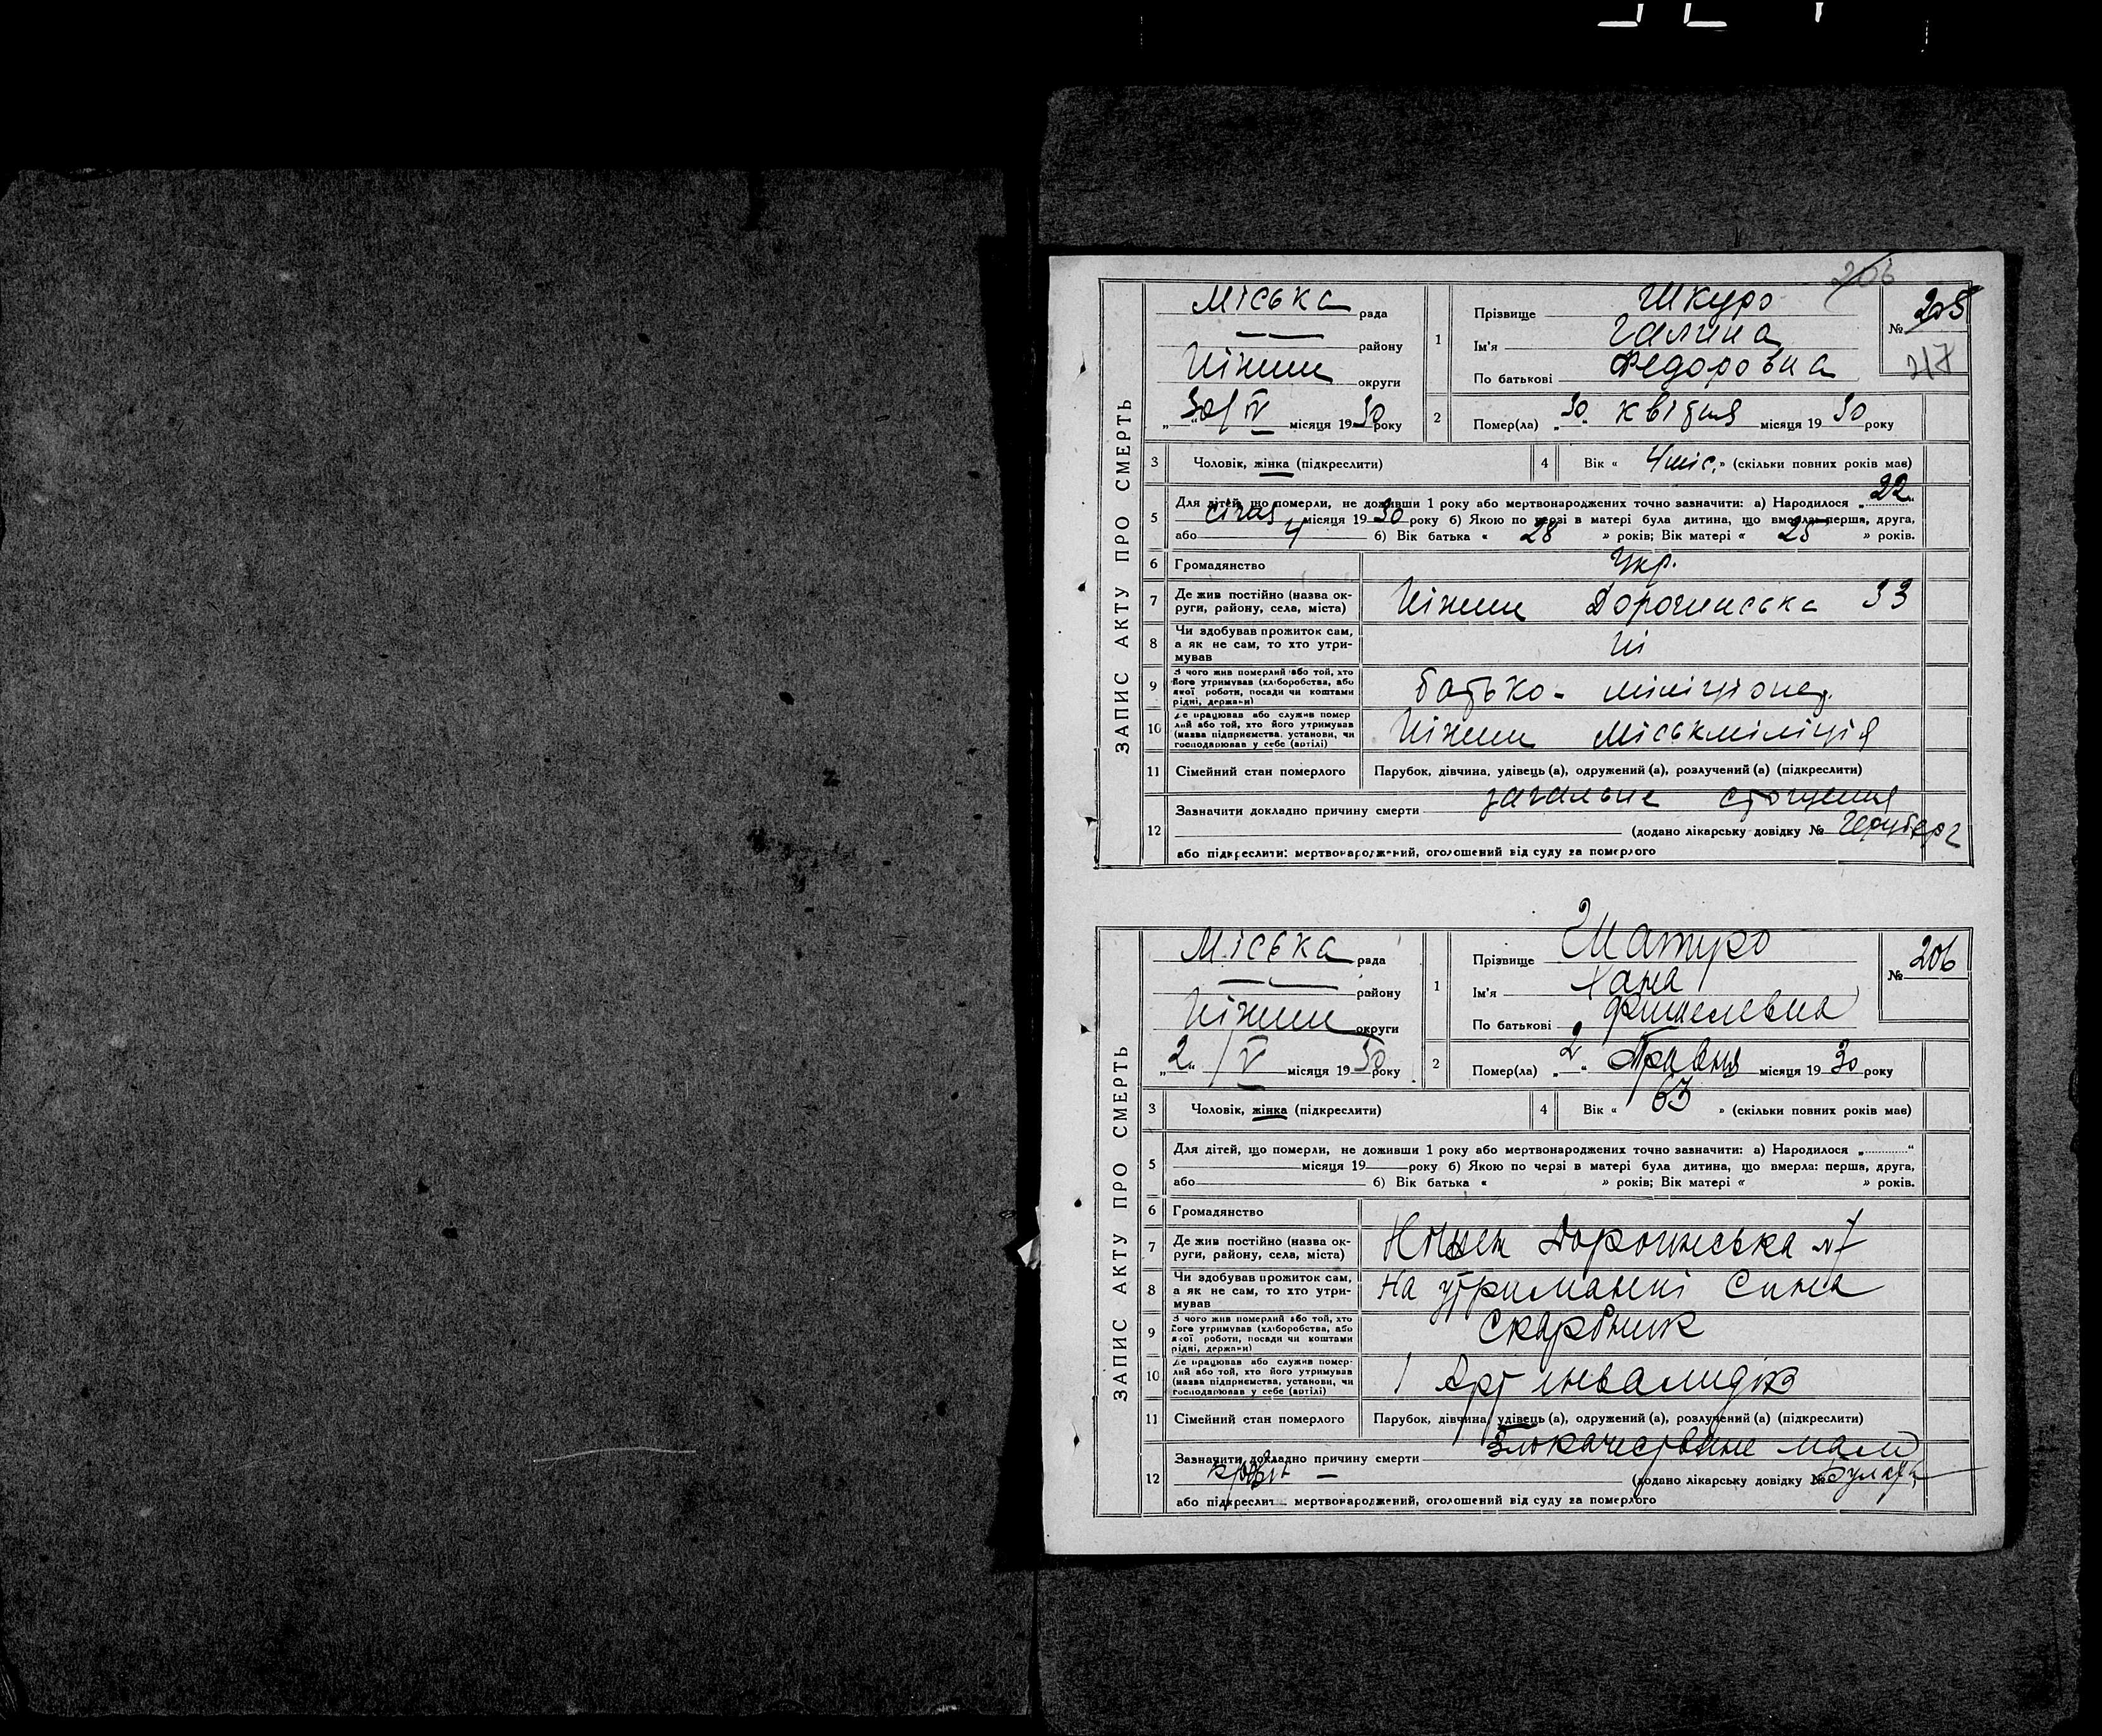 206
ЗАПИС АКТУ ПРО СМЕРТЬ
Міська рада
району
Ніжин округи
„30/IV місяця 1930 року
1
Прізвище Шкуро
Ім'я Галина
По батькові Федоровна
№ 205
217
2 Помер(ла) „30" квітня місяця 1930 року
3 Чоловік, жінка (підкреслити)
4 Вік « 4 міс. » (скільки повних років має)
5 Для дітей, що померли, не доживши 1 року або мертвонароджених точно зазначити: а) Народилося „22"
січня місяця 1930 року б) Якою по черзі в матері була дитина, що вмерла: перша, друга,
або 4 б) Вік батька « 28 » років; Вік матері « 25 » років.
6 Громадянство Укр.
7 Де жив постійно (назва округи, району, села, міста) Ніжин Дорогинська 33
8 Чи здобував прожиток сам, а як не сам, то хто утримував Ні
9 З чого жив померлий або той, хто його утримував (хліборобства, або якої роботи, посади чи коштами рідні, держави) батько - міліціонер.
10 Де працював або служив померлий або той, хто його утримував (назва підприємства, установи, чи господарював у себе (артілі) Ніжин Міськміліція
11 Сімейний стан померлого Парубок, дівчина, удівець (а), одружений (а), розлучений (а) (підкреслити)
12 Зазначити докладно причину смерти загальне стощення
(додано лікарську довідку №
або підкреслити: мертвонароджений, оголошений від суду за померлого
ЗАПИС АКТУ ПРО СМЕРТЬ
Міська рада
району
Ніжин округи
„2" / V місяця 1930 року
1
Прізвище Шапиро
Ім'я Хана
По батькові Фишелевна
№ 206
2 Помер(ла) „2" Травня місяця 1930 року
3 Чоловік, жінка (підкреслити)
4 Вік « 63 » (скільки повних років має)
5 Для дітей, що померли, не доживши 1 року або мертвонароджених точно зазначити: а) Народилося „ "
місяця 19 року б) Якою по черзі в матері була дитина, що вмерла: перша, друга,
або б) Вік батька « » років; Вік матері « » років.
6 Громадянство
7 Де жив постійно (назва округи, району, села, міста) Ніжен Дорогинська № 7
8 Чи здобував прожиток сам, а як не сам, то хто утримував На утриманні Сина
9 З чого жив померлий або той, хто його утримував (хліборобства, або якої роботи, посади чи коштами рідні, держави) Скарбник
10 Де працював або служив померлий або той, хто його утримував (назва підприємства, установи, чи господарював у себе (артілі) 1 Арт инвалидів
11 Сімейний стан померлого Парубок, дівчина, удівець (а), одружений (а), розлучений (а) (підкреслити)
12 Зазначити докладно причину смерти Злокачествіне мало
кровіє – (додано лікарську довідку №
або підкреслит мертвонароджений, оголошений від суду за померлого